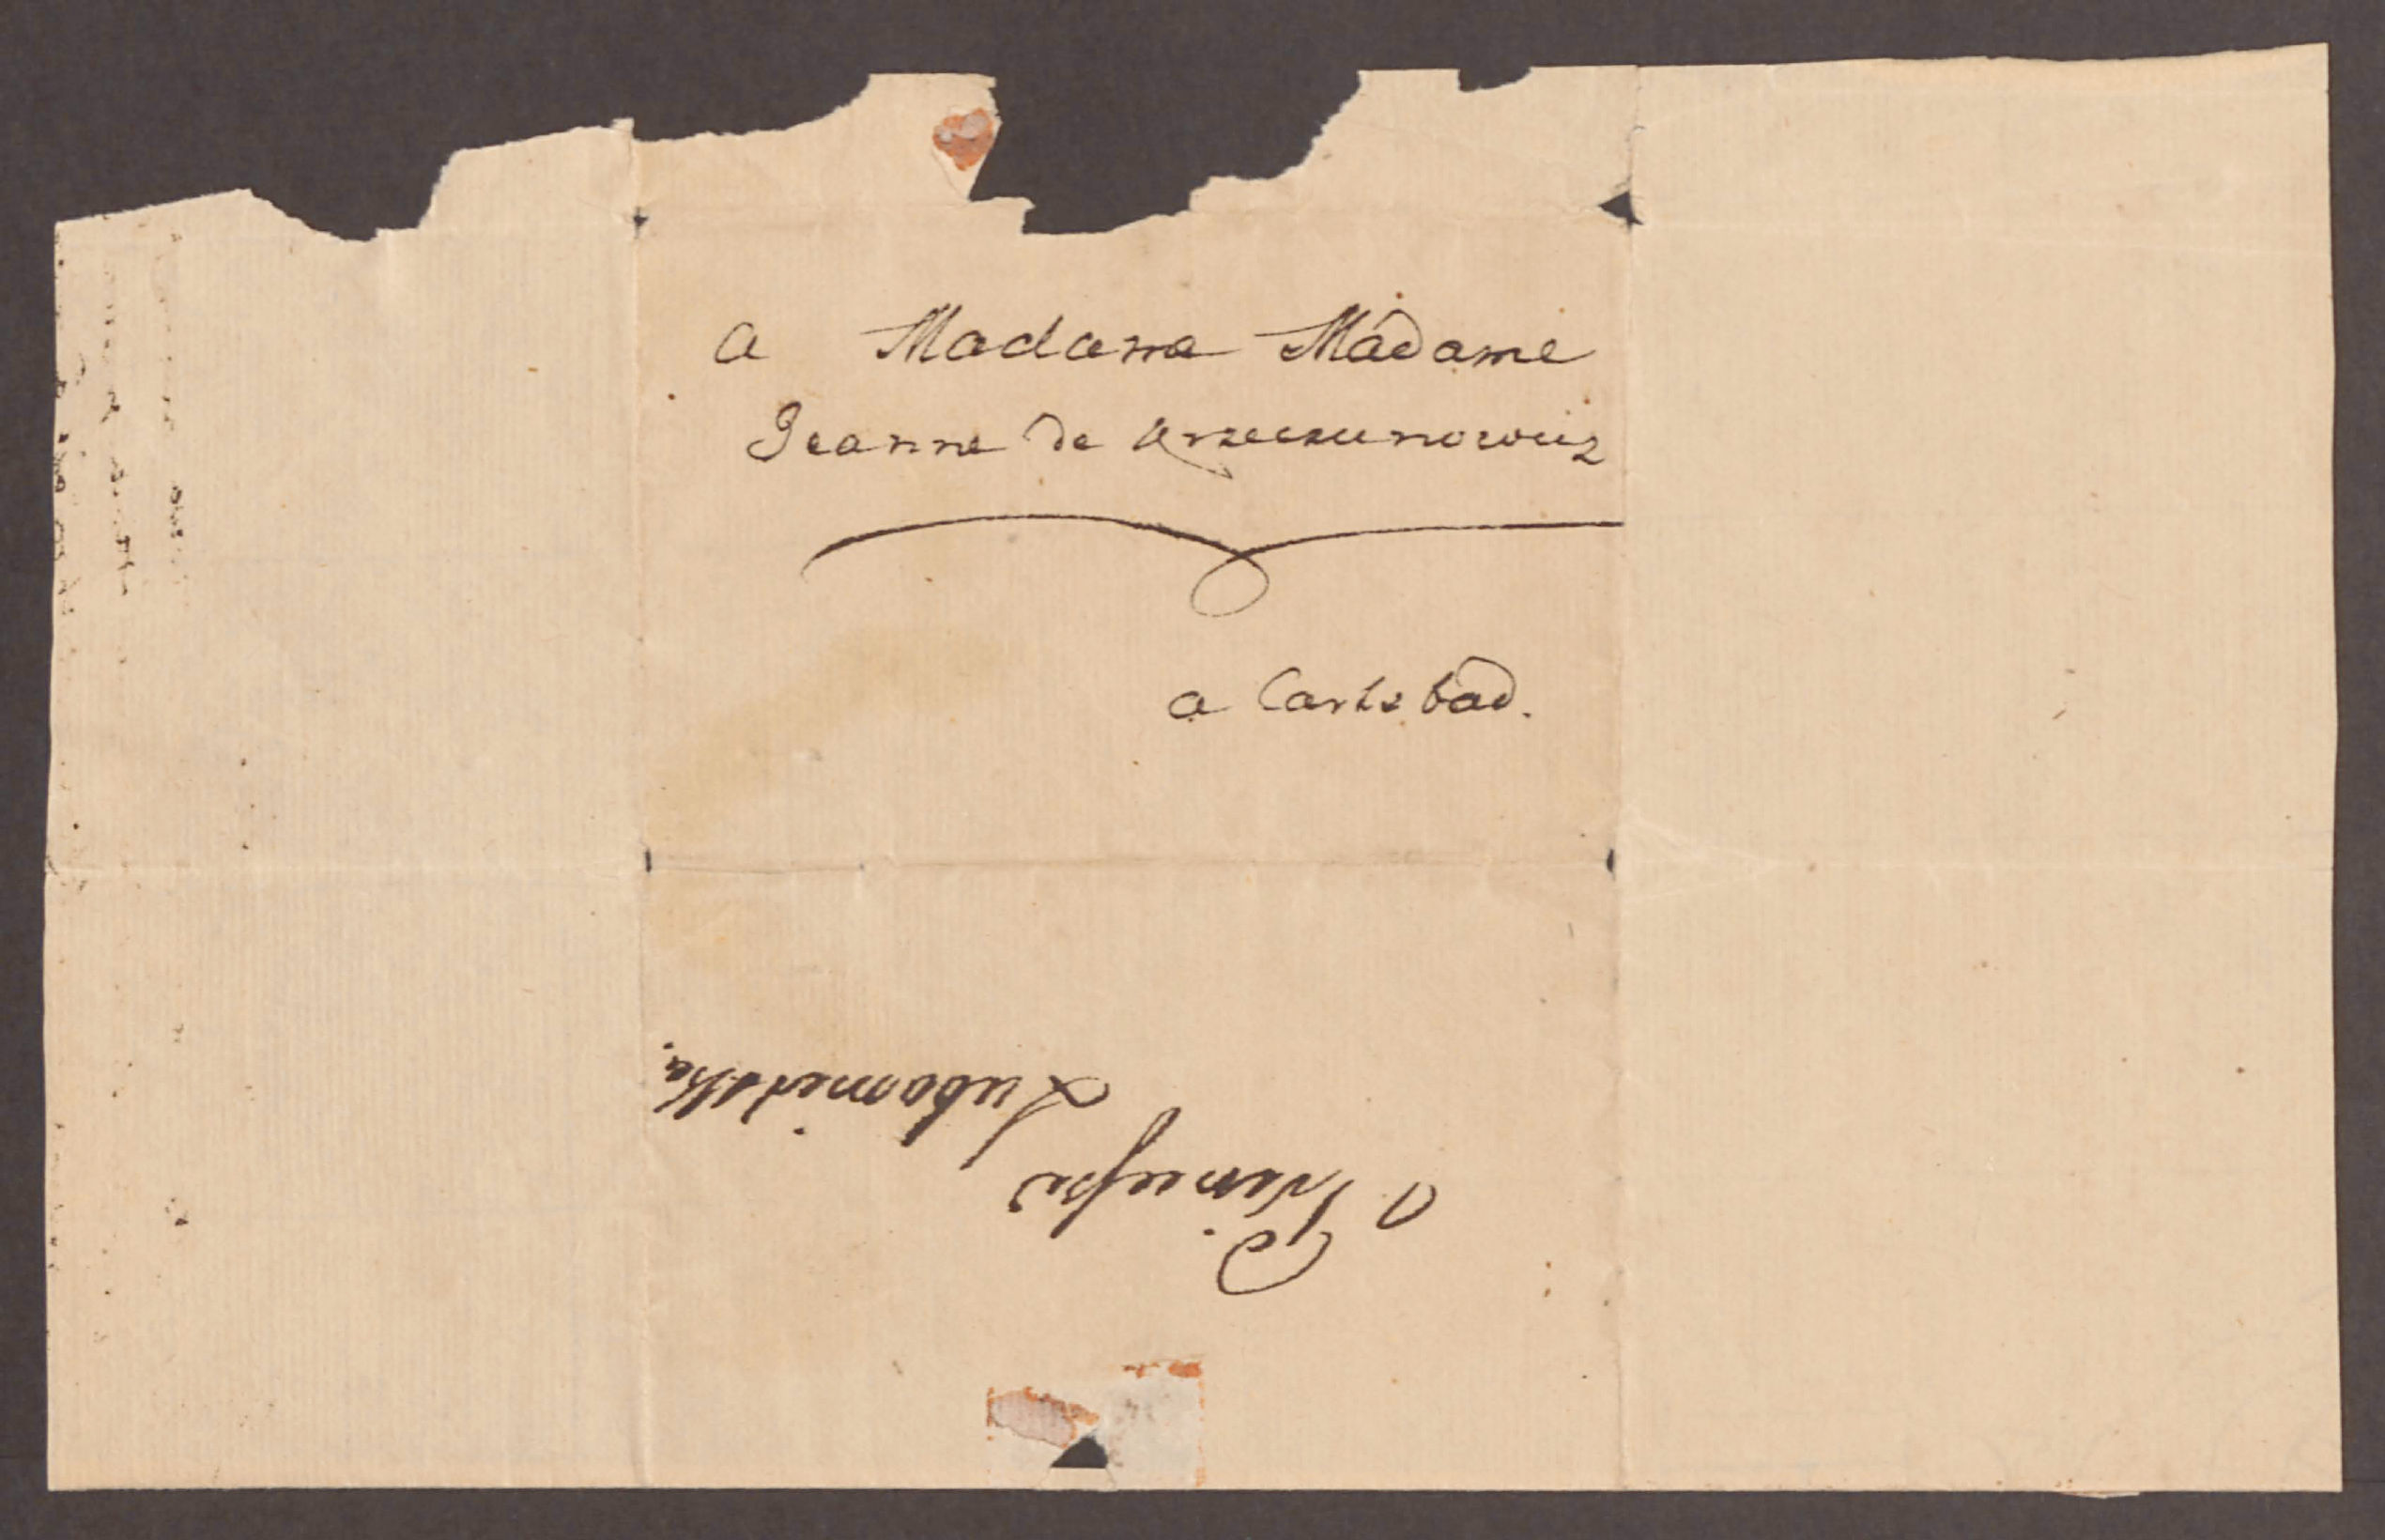 a Madame Madame
Jeanne de Krzeczunowicz
a Carlsbad.
a Princesse
Lubomirska.